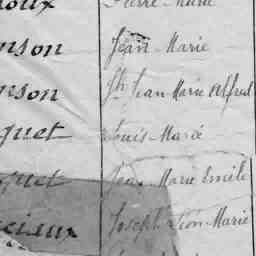 Pierre Marie
nson Jean - Marie
nson Jh Jean Marie Alfred
quet Louis - Marie
quet Jean Marie Emile
ciaux Joseph Léon - Marie